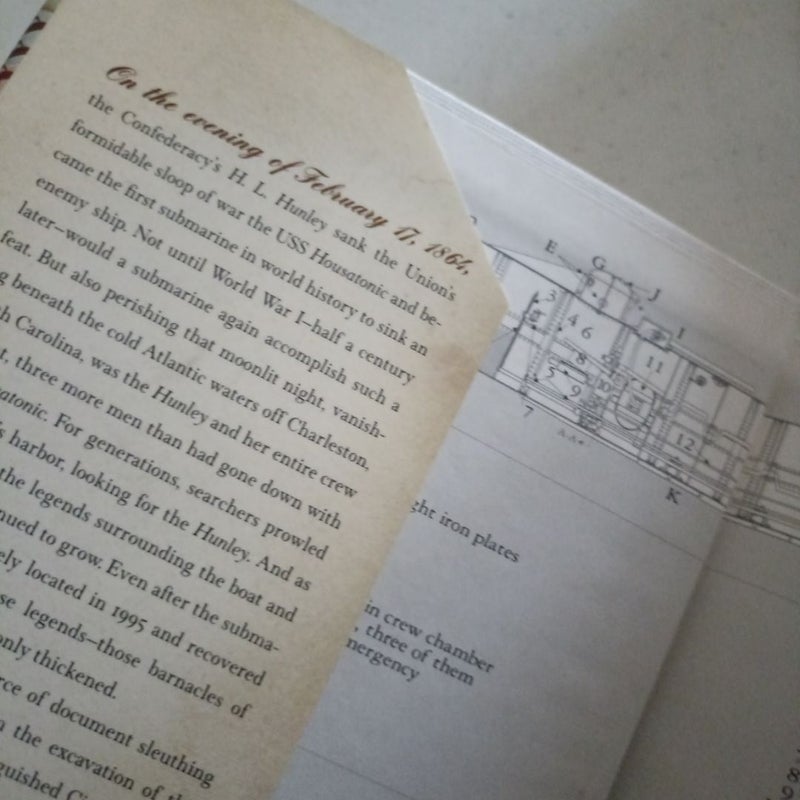 On the evening of February 17, 1864,
the Confederacy's H. L. Hunley sank the Union's
formidable sloop of war the USS Housatonic and be-
came the first submarine in world history to sink an
enemy ship. Not until World War I—half a century
later—would a submarine again accomplish such a
feat. But also perishing that moonlit night, vanish-
g beneath the cold Atlantic waters off Charleston,
h Carolina, was the Hunley and her entire crew
t, three more men than had gone down with
satonic. For generations, searchers prowled
s harbor, looking for the Hunley. And as
the legends surrounding the boat and
nued to grow. Even after the subma-
ely located in 1995 and recovered
se legends—those barnacles of
only thickened.
rce of document sleuthing
the excavation of
guished
E G J I
3 4 6 11
8
5 9 10
12
7
K
ght iron plates
in crew chamber
, three of them
nergency